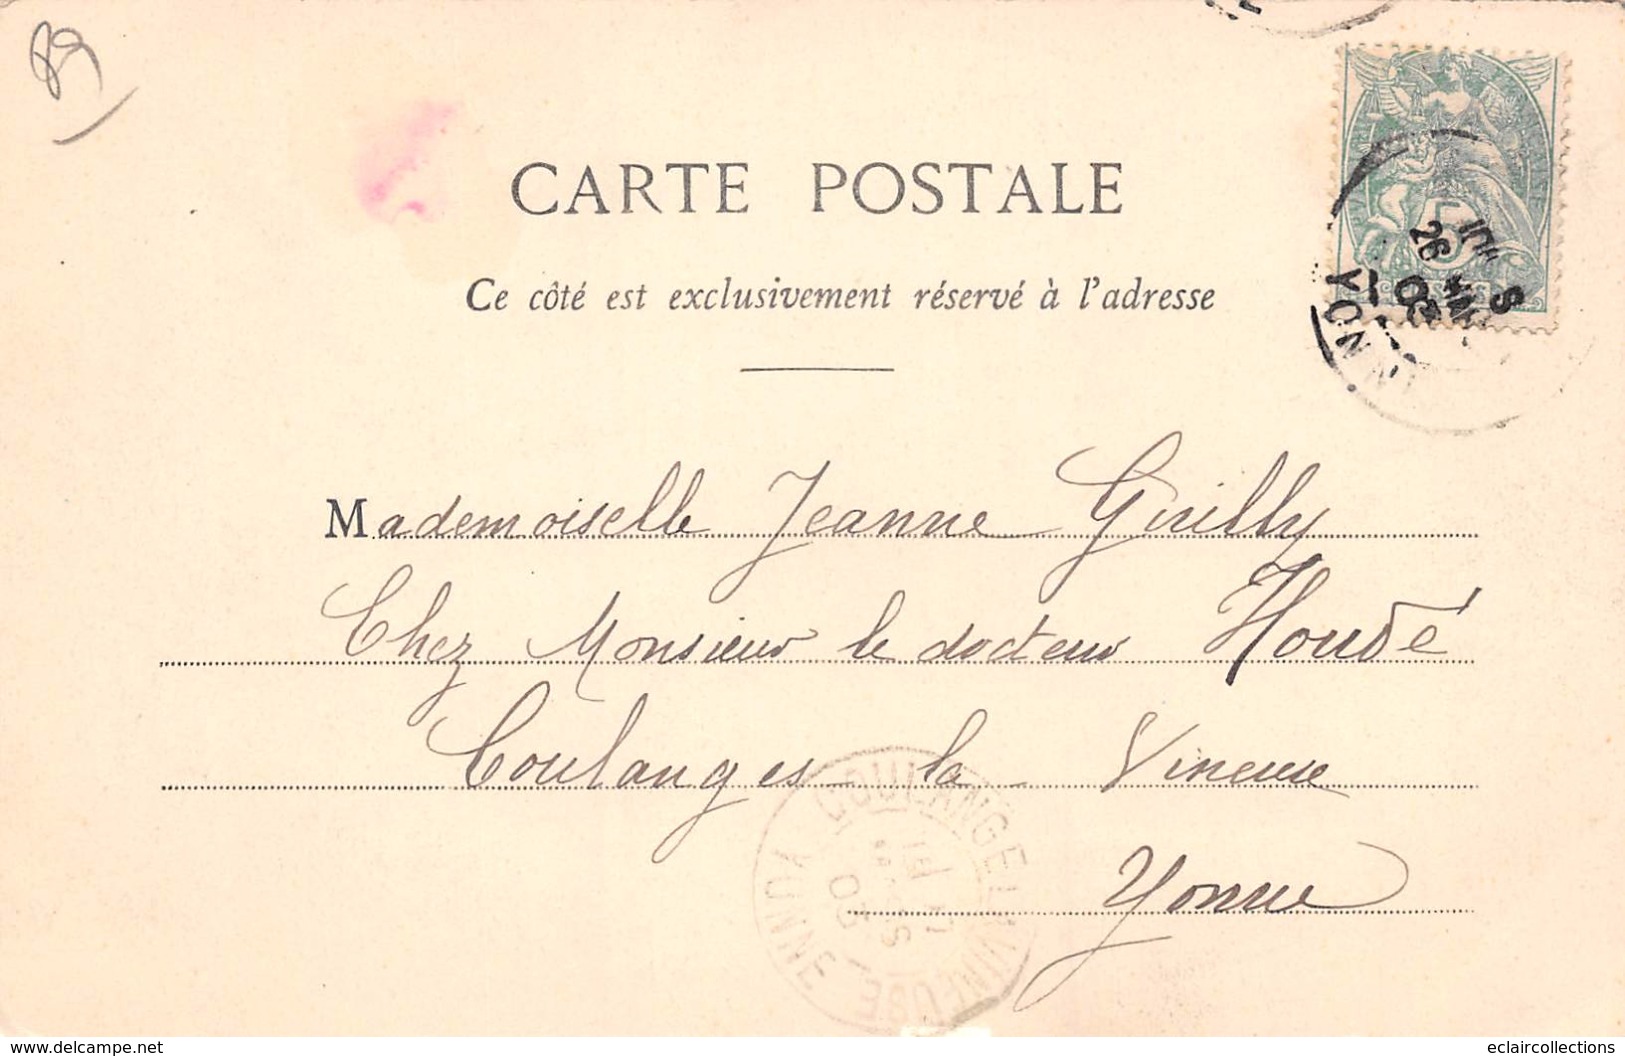 89
CARTE POSTALE
Ce côté est exclusivement réservé à l'adresse
5
26
03
YONNE
Mademoiselle Jeanne Guilly
Chez Monsieur le docteur Houdé
Coulanges la Vineuse
Yonne
COULANGES LA VINEUSE
MARS
03
YONNE
www.delcampe.net
eclaircollections